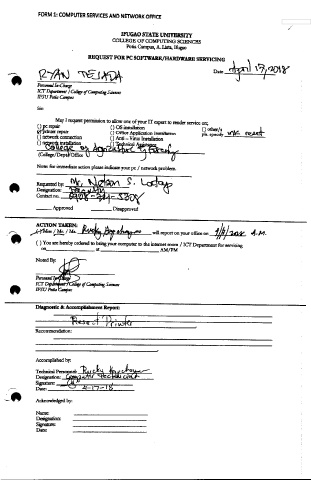 FORM 1: COMPUTER SERVICES AND NETWORK OFFICE
IFUGAO STATE UNIVERSITY
COLLEGE OF COMPUTING SCIENCES
Potia Campus, A. Lista, Ifugao
REQUEST FOR PC SOFTWARE/HARDWARE SERVICING
Date April 17, 2018
RYAN TEJADA
Personnel In-Charge
ICT Department / College of Computing Sciences
IFSU Potia Campus
Sir:
May I request permission to allow one of your IT expert to render service on;
( ) pc repair ( ) OS installation ( ) other/s
printer repair ( ) Office Application installation pls. specify ink reset
( ) network connection ( ) Anti – Virus Installation
( ) network installation ( ) Technical Assistance
College of Agriculture & Forestry
(College/Dept/Office)
Note: for immediate action please indicate your pc / network problem.
Requested by: Mr. Nelson S.
Designation:
Contact no.
Approved Disapproved
ACTION TAKEN:
( ) Mam / Mr. / Ms. will report on your office on A.M.
( ) You are hereby ordered to bring your computer to the internet room / ICT Department for servicing
on at AM/PM
Noted By:
Personnel In-Charge
ICT Department / College of Computer Sciences
IFSU Potia Campus
Diagnostic & Accomplishment Report:
Reset Printer
Recommendation:
Accomplished by:
Technical Personnel: Rucky
Designation: Computer Technician
Signature:
Date: 4-17-18
Acknowledged by:
Name:
Designation:
Signature:
Date: